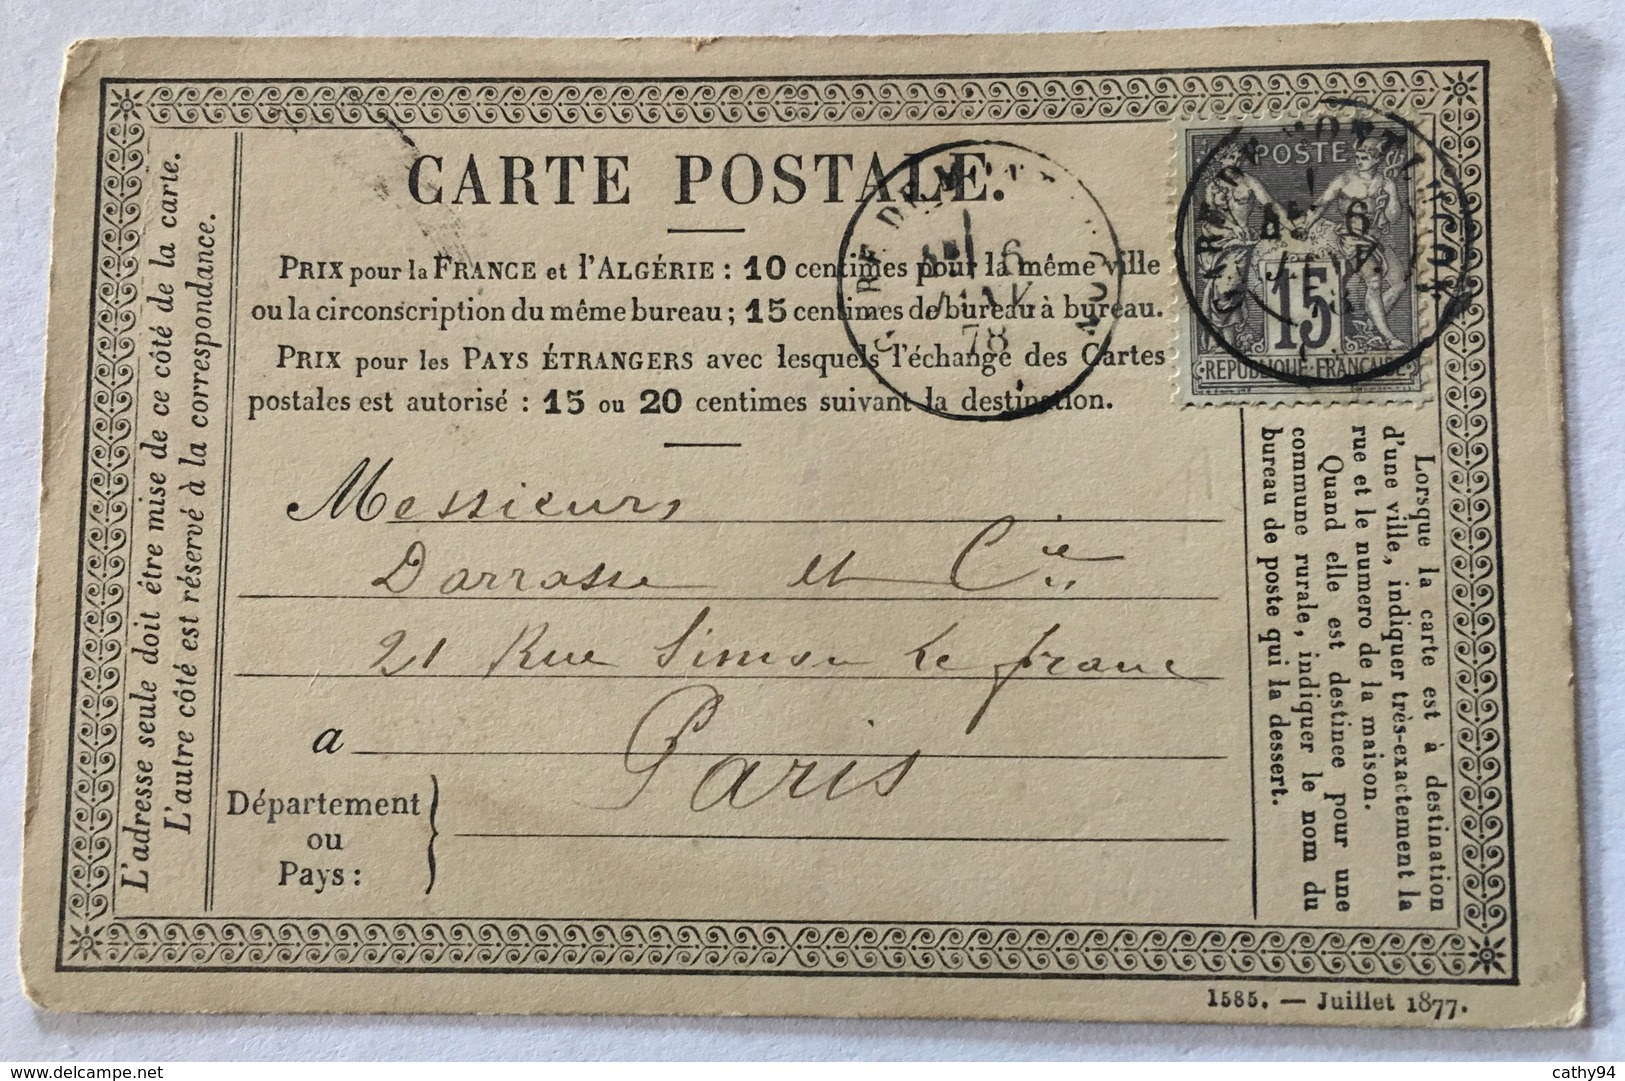 CARTE POSTALE.
PRIX pour la FRANCE et l'ALGÉRIE : 10 centimes pour la même ville
ou la circonscription du même bureau ; 15 centimes de bureau à bureau.
PRIX pour les PAYS ÉTRANGERS avec lesquels l'échange des Cartes
postales est autorisé : 15 ou 20 centimes suivant la destination.
POSTE
15
REPUBLIQUE FRANÇAISE
6
JANV
78
L'adresse seule doit être mise de ce côté de la carte.
L'autre côté est réservé à la correspondance.
Messieurs
Darrasse et Cie
21 Rue Simon Le franc
a Paris
Département
ou
Pays :
Lorsque la carte est à destination
d'une ville, indiquer très-exactement la
rue et le numero de la maison.
Quand elle est destinee pour une
commune rurale, indiquer le nom du
bureau de poste qui la dessert.
1585. — Juillet 1877.
cathy94